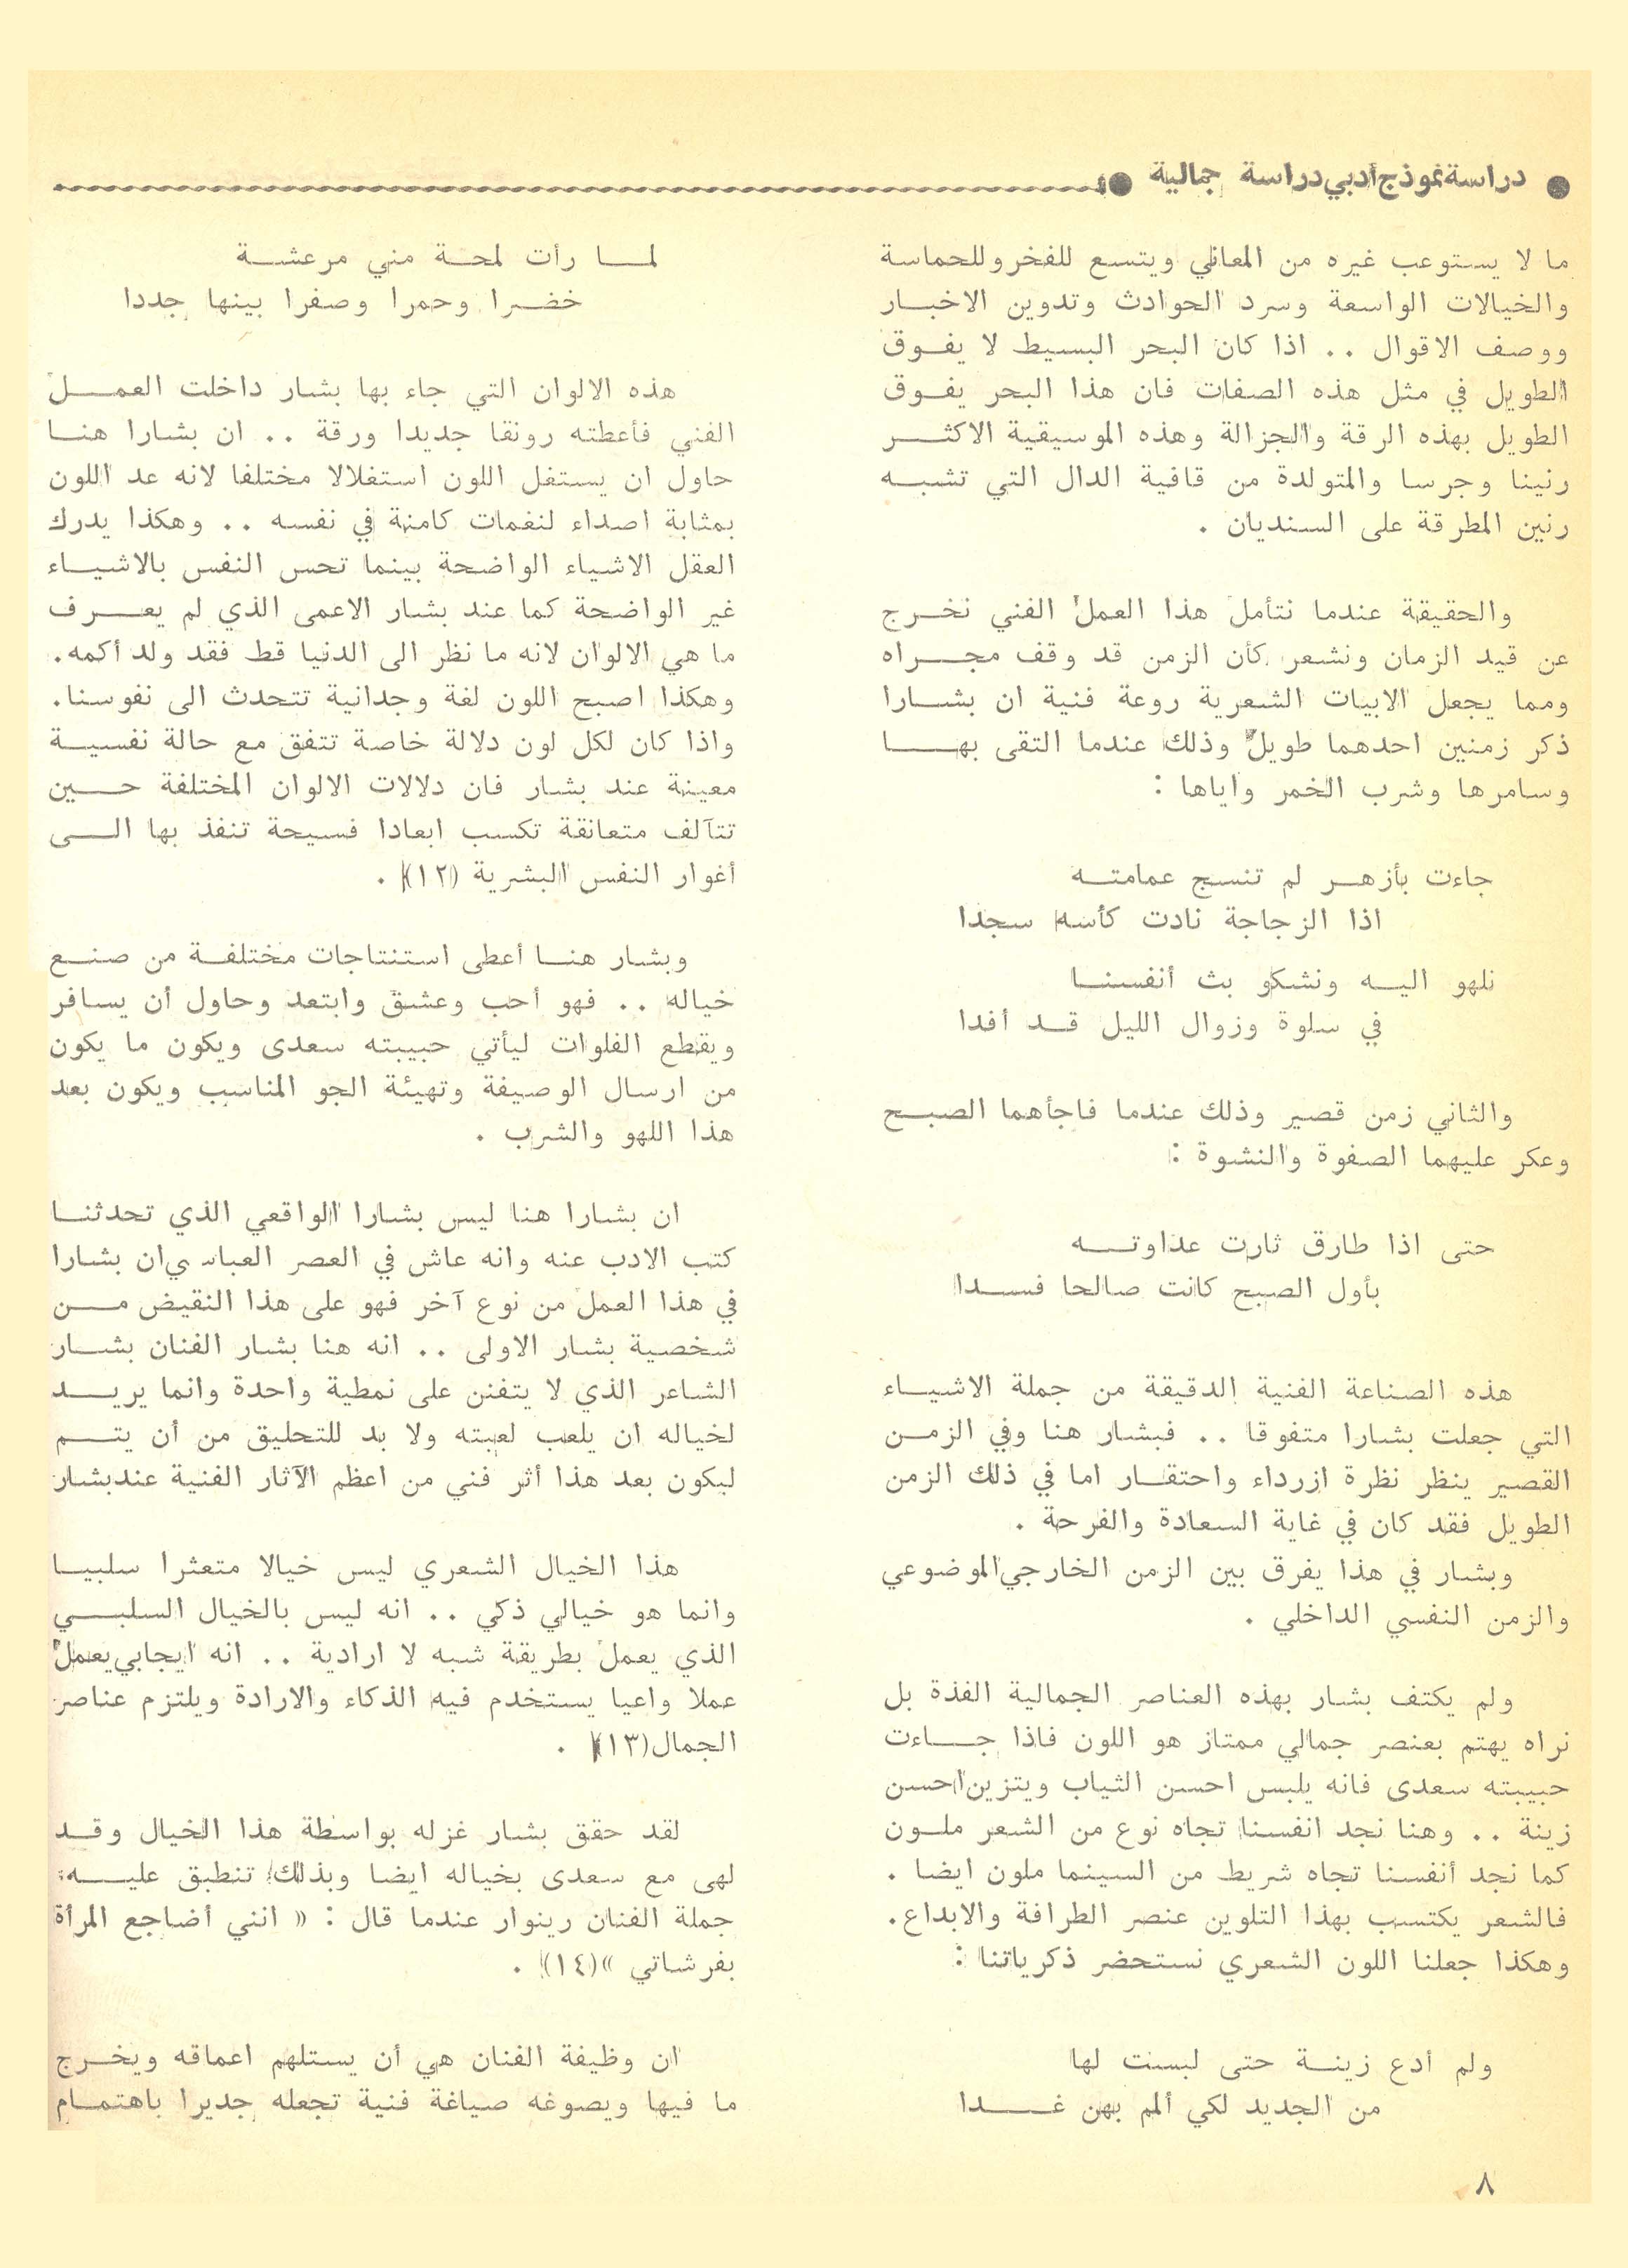 ● دراسة نموذج أدبي دراسة جمالية ●
ما لا يستوعب غيره من المعاني ويتسع للفخر وللحماسة
والخيالات الواسعة وسرد الحوادث وتدوين الاخبار
ووصف الاقوال .. اذا كان البحر البسيط لا يفوق
الطويل في مثل هذه الصفات فان هذا البحر يفوق
الطويل بهذه الرقة والجزالة وهذه الموسيقية الاكثر
رنينا وجرسا والمتولدة من قافية الدال التي تشبه
رنين المطرقة على السنديان .
والحقيقة عندما نتأمل هذا العمل الفني نخرج
عن قيد الزمان ونشعر كأن الزمن قد وقف مجراه
ومما يجعل الابيات الشعرية روعة فنية ان بشارا
ذكر زمنين احدهما طويل وذلك عندما التقى بها
وسامرها وشرب الخمر واياها :
جاءت بأزهر لم تنسج عمامته
اذا الزجاجة نادت كأسه سجدا
نلهو اليه ونشكو بث أنفسنا
في سلوة وزوال الليل قد أفدا
والثاني زمن قصير وذلك عندما فاجأهما الصبح
وعكر عليهما الصفوة والنشوة :
حتى اذا طارق ثارت عداوته
بأول الصبح كانت صالحا فسدا
هذه الصناعة الفنية الدقيقة من جملة الاشياء
التي جعلت بشارا متفوقا .. فبشار هنا وفي الزمن
القصير ينظر نظرة ازرداء واحتقار اما في ذلك الزمن
الطويل فقد كان في غاية السعادة والفرحة .
وبشار في هذا يفرق بين الزمن الخارجي الموضوعي
والزمن النفسي الداخلي .
ولم يكتف بشار بهذه العناصر الجمالية الفذة بل
نراه يهتم بعنصر جمالي ممتاز هو اللون فاذا جاءت
حبيبته سعدى فانه يلبس احسن الثياب ويتزين احسن
زينة .. وهنا نجد انفسنا تجاه نوع من الشعر ملون
كما نجد أنفسنا تجاه شريط من السينما ملون ايضا .
فالشعر يكتسب بهذا التلوين عنصر الطرافة والابداع .
وهكذا جعلنا اللون الشعري نستحضر ذكرياتنا :
ولم أدع زينة حتى لبست لها
من الجديد لكي ألم بهن غدا
لما رأت لمحة مني مرعشة
خضرا وحمرا وصفرا بينها جددا
هذه الالوان التي جاء بها بشار داخلت العمل
الفني فأعطته رونقا جديدا ورقة .. ان بشارا هنا
حاول ان يستغل اللون استغلالا مختلفا لانه عد اللون
بمثابة اصداء لنغمات كامنة في نفسه .. وهكذا يدرك
العقل الاشياء الواضحة بينما تحس النفس بالاشياء
غير الواضحة كما عند بشار الاعمى الذي لم يعرف
ما هي الالوان لانه ما نظر الى الدنيا قط فقد ولد أكمه .
وهكذا اصبح اللون لغة وجدانية تتحدث الى نفوسنا .
واذا كان لكل لون دلالة خاصة تتفق مع حالة نفسية
معينة عند بشار فان دلالات الالوان المختلفة حين
تتآلف متعانقة تكسب ابعادا فسيحة تنفذ بها الى
أغوار النفس البشرية (١٢) .
وبشار هنا أعطى استنتاجات مختلفة من صنع
خياله .. فهو أحب وعشق وابتعد وحاول أن يسافر
ويقطع الفلوات ليأتي حبيبته سعدى ويكون ما يكون
من ارسال الوصيفة وتهيئة الجو المناسب ويكون بعد
هذا اللهو والشرب .
ان بشارا هنا ليس بشارا الواقعي الذي تحدثنا
كتب الادب عنه وانه عاش في العصر العباسي ان بشارا
في هذا العمل من نوع آخر فهو على هذا النقيض من
شخصية بشار الاولى .. انه هنا بشار الفنان بشار
الشاعر الذي لا يتفنن على نمطية واحدة وانما يريد
لخياله ان يلعب لعبته ولا بد للتحليق من أن يتم
ليكون بعد هذا أثر فني من اعظم الآثار الفنية عند بشار
هذا الخيال الشعري ليس خيالا متعثرا سلبيا
وانما هو خيالي ذكي .. انه ليس بالخيال السلبي
الذي يعمل بطريقة شبه لا ارادية .. انه ايجابي يعمل
عملا واعيا يستخدم فيه الذكاء والارادة ويلتزم عناصر
الجمال (١٣) .
لقد حقق بشار غزله بواسطة هذا الخيال وقد
لهى مع سعدى بخياله ايضا وبذلك تنطبق عليه
جملة الفنان رينوار عندما قال : « انني أضاجع المرأة
بفرشاتي » (١٤) .
ان وظيفة الفنان هي أن يستلهم اعماقه ويخرج
ما فيها ويصوغه صياغة فنية تجعله جديرا باهتمام
٨